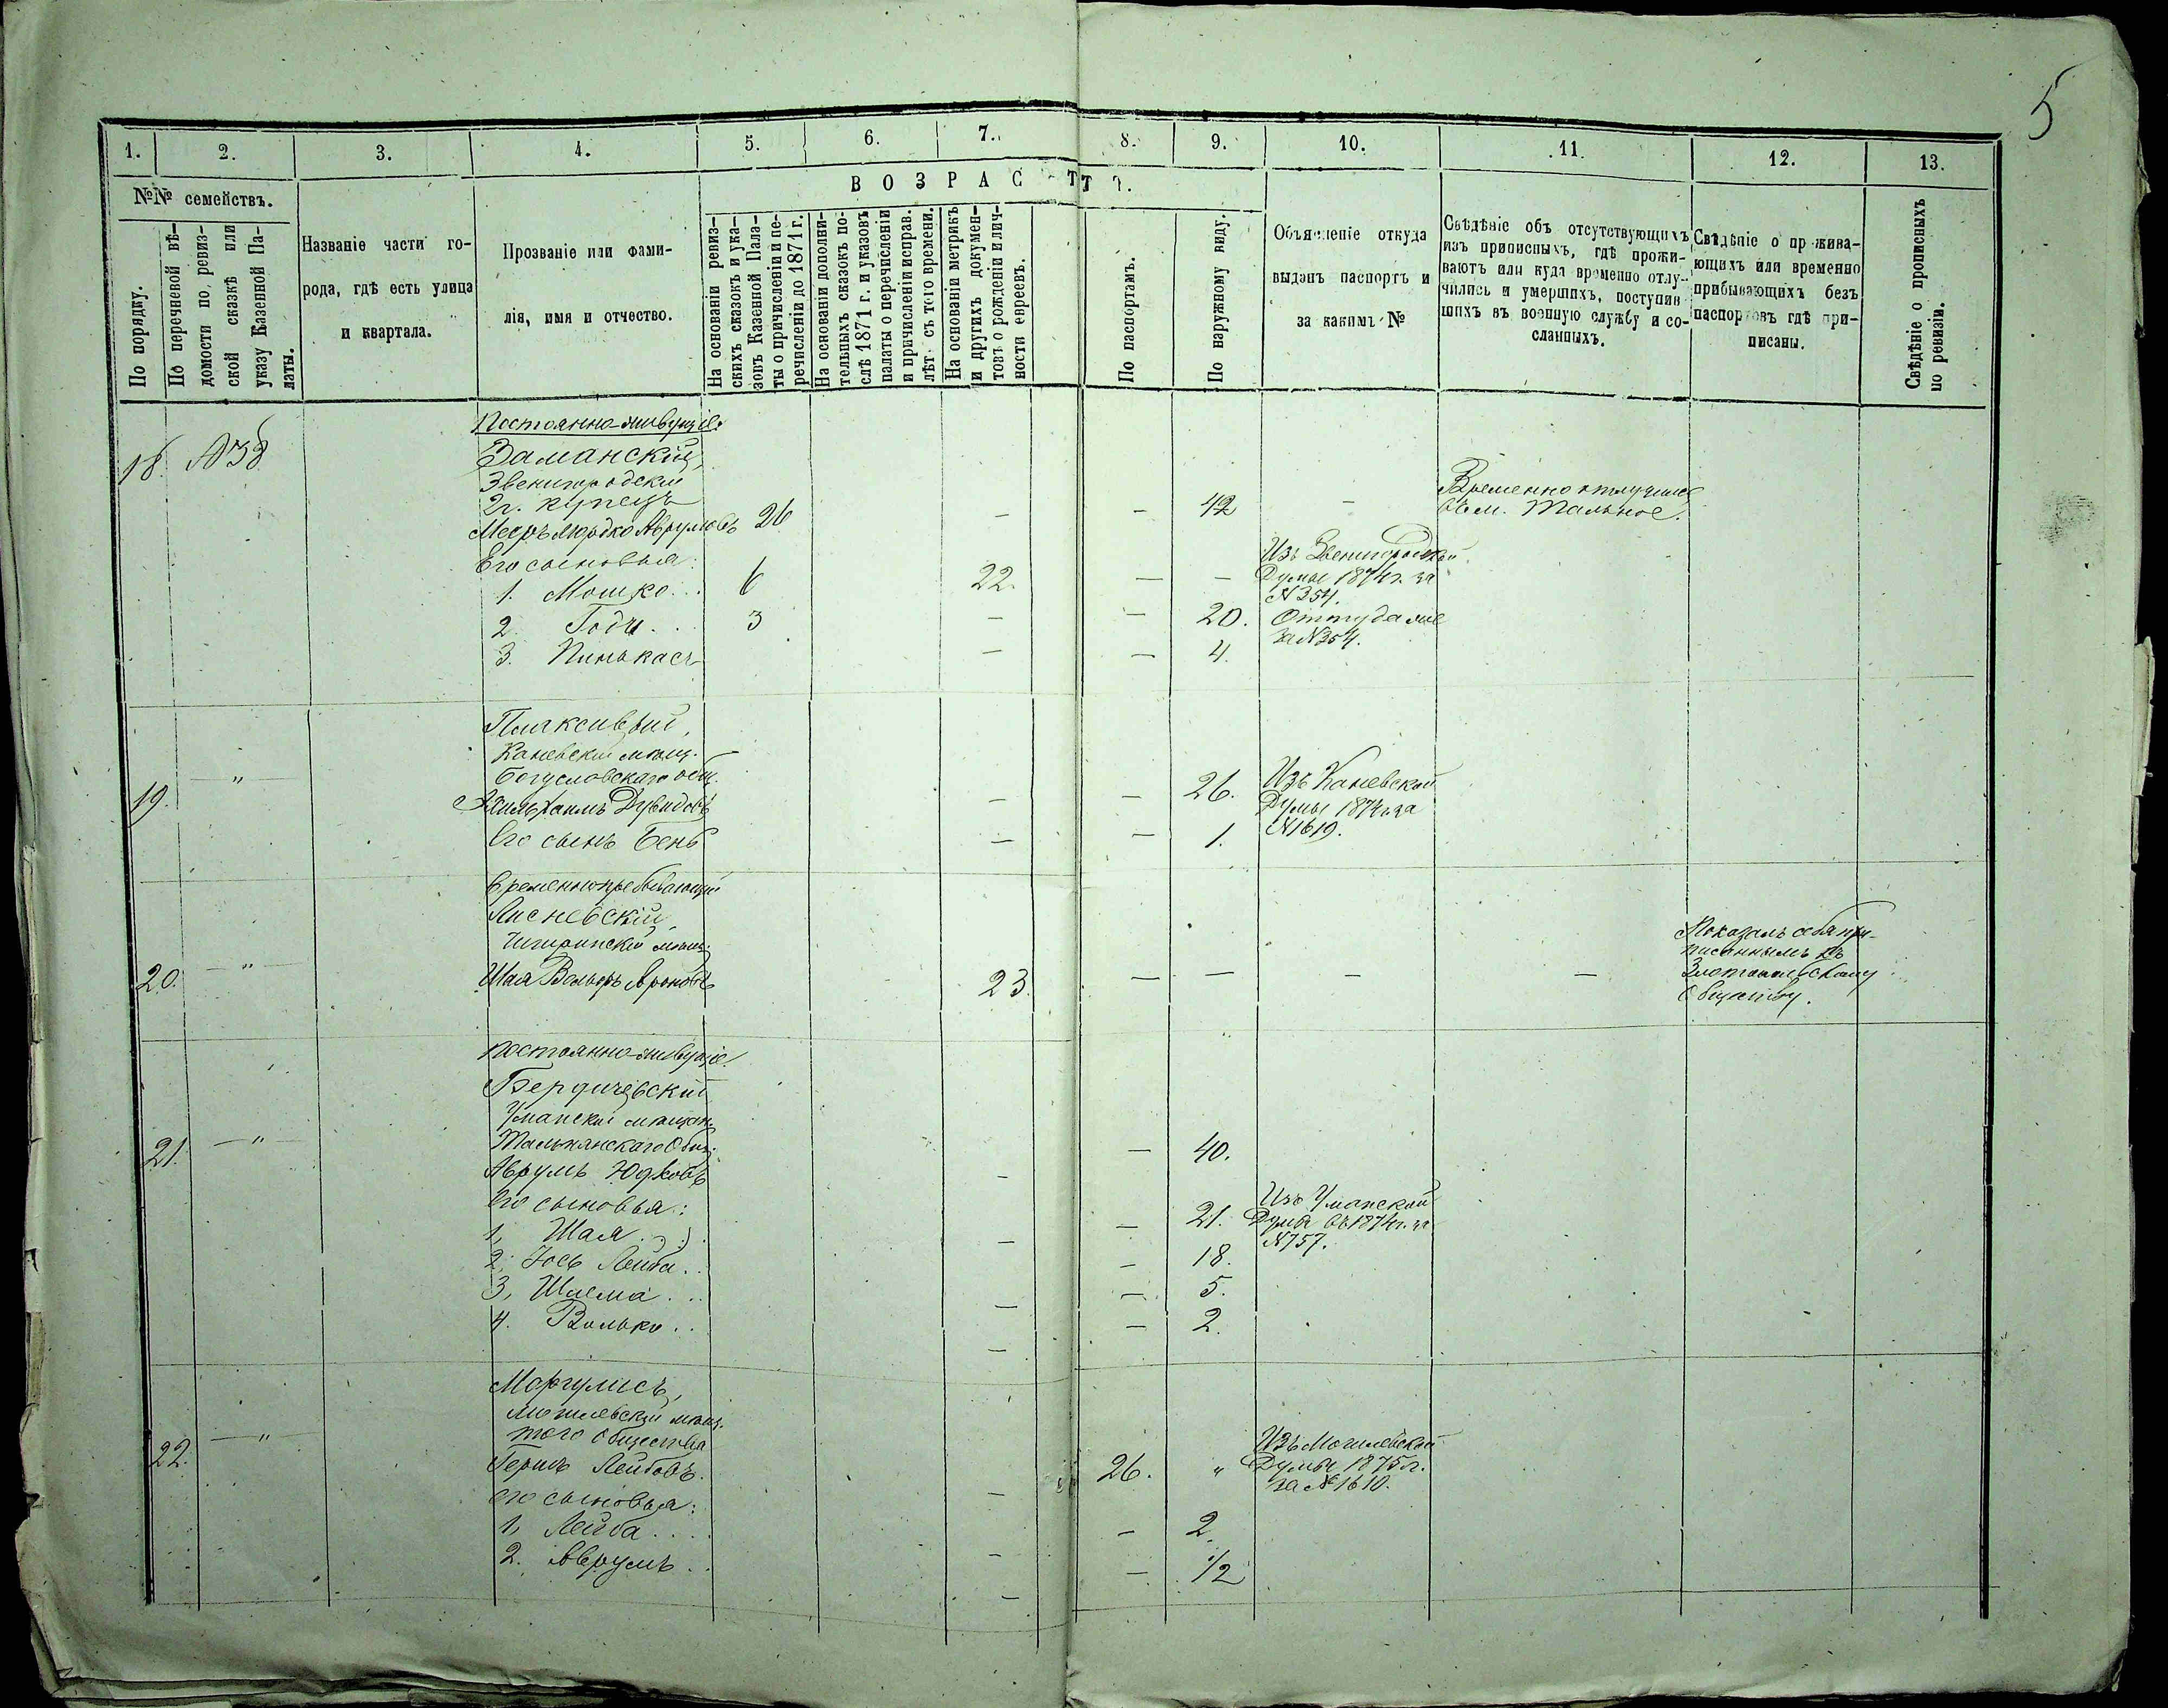 5
1. 2. 3. 4. 5. 6. 7. 8. 9. 10. 11. 12. 13.
№№ семействъ.
По порядку.
По перечневой вѣ-
домости по ревиз-
ской сказкѣ или
указу Казенной Па-
латы.
Названіе части го-
рода, гдѣ есть улица
и квартала.
Прозваніе или фами-
лія, имя и отчество.
ВОЗРАСТЪ.
На основаніи ревиз-
скихъ сказокъ и ука-
зовъ Казенной Пала-
ты о причисленіи и пе-
речисленіи до 1871 г.
На основаніи дополни-
тельныхъ сказокъ по-
слѣ 1871 г. и указовъ
палаты о перечисленіи
и причисленіи исправ.
лѣт. съ того времени.
На основаніи метрикъ
и другихъ докумен-
товъ о рожденіи и лич-
ности евреевъ.
По паспортамъ.
По наружному виду.
Объясненіе откуда
выданъ паспортъ и
за какимъ №
Свѣдѣніе объ отсутствующихъ
изъ приписныхъ, гдѣ прожи-
ваютъ или куда временно отлу-
чились и умершихъ, поступив-
шихъ въ военную службу и со-
сланныхъ.
Свѣдѣніе о прожива-
ющихъ или временно
прибывающихъ безъ
паспортовъ гдѣ при-
писаны.
Свѣдѣніе о прописныхъ
по ревизіи.
Постоянно-живущіе.
18. №38 Заманскій,
Звенигородскій
2 г. купецъ
Мееръ Мордко Аврумовъ 26 — — 42 —
Временно отлучился
въ м. Тальное.
Его сыновья:
1. Мошко... 6 22. — —
Изъ Звенигородской
Думы 1874 г. за
№354.
2. Годи... 3 — — 20. Оттуда же
за №354.
3. Пинькасъ — — 4.
Плаксивый,
Каневскій мѣщ.
Богуславскаго общ.
19. — " — Хаимъ Дувидовъ — — 26. Изъ Каневской
Думы 1874 г. за
№1619.
Его сынъ Бень — — 1.
Временнопребывающій
Лисневскій,
Чигиринскій мѣщ.
20. — " — Шая Вольфъ Ароновъ 23. — — — —
Показалъ себя при-
писаннымъ къ
Златопольскому
Обществу.
Постоянно-живущіе.
Бердичевскій
Уманскій мѣщан.
Тальнянскаго Общ.
21. — " — Аврумъ Юдковъ — — 40.
Его сыновья:
1. Шая... — — 21. Изъ Уманской
Думы въ 1874 г. за
№757.
2. Іось Лейба.. — 18.
3. Шлема... — — 5.
4. Волько.. — — 2.
Маргулисъ,
Могилевскій мѣщ.
того Общества
22. — " — Гершъ Лейбовъ. — 26. " Изъ Могилевской
Думы 1875 г.
за №1610.
его сыновья:
1. Лейба.... — — 2.
2. Аврумъ.. — — 1/2